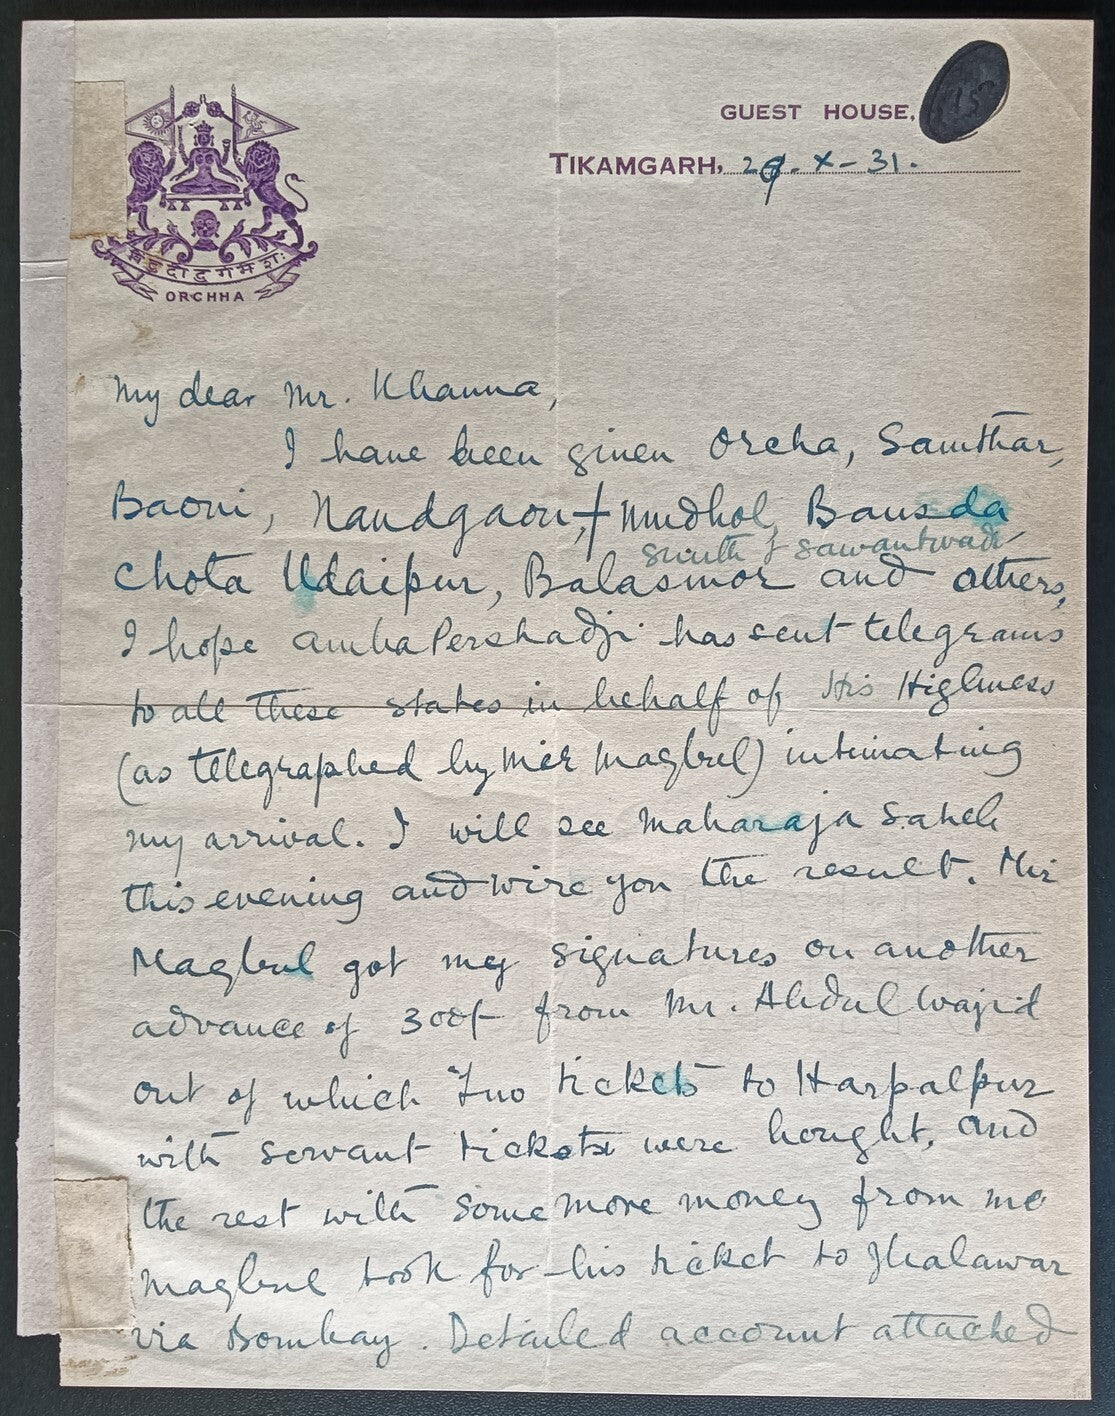 GUEST HOUSE,
TIKAMGARH, 29-X-31.
ORCHHA
My dear Mr. Khanna,
I have been given Orcha, Samthar,
Baoni, Nandgaon, + Mudhol, Bansda,
Sunth & Sawantwadi
Chota Udaipur, Balasinor and others,
I hope Amba Pershadji has sent telegrams
to all these states in behalf of His Highness
(as telegraphed by Mir Maqbul) intimating
my arrival. I will see Maharaja Saheb
this evening and wire you the result. Mir
Maqbul got my signatures on another
advance of 300/- from Mr. Abdul Wajid
out of which Two tickets to Harpalpur
with servant tickets were bought, and
the rest with some more money from me
Maqbul took for his ticket to Jhalawar
via Bombay. Detailed account attached